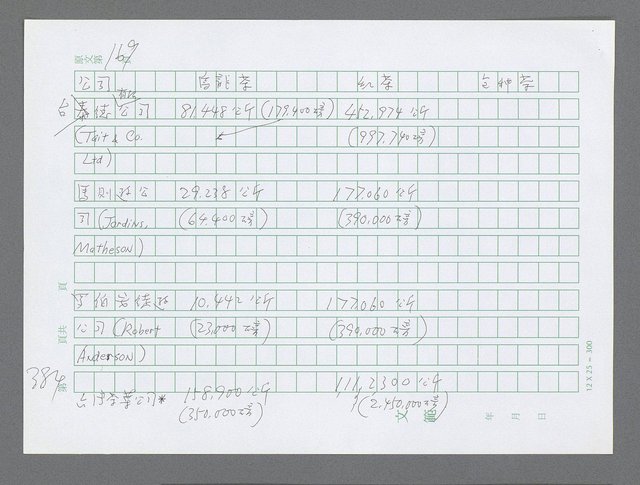 原文第 169
公司 烏龍茶 紅茶 包種茶
台
德公司 81,448公斤(179,400磅) 452,974公斤
(Tait & Co. (997,740磅)
Ltd)
公 29.238公斤 177.060公斤
司(Jardins, (64.400磅) (390,000磅)
Matheson)
頁
10.442公斤 177.060公斤
公司(Robert (23,000磅) (390,000磅)
頁共
Anderson)
384
第
台灣茶葉公司* 158,900公斤 1,112,300公斤
(350,000磅) (2,450,000磅)
文範 年 月 日
12 X 25 = 300